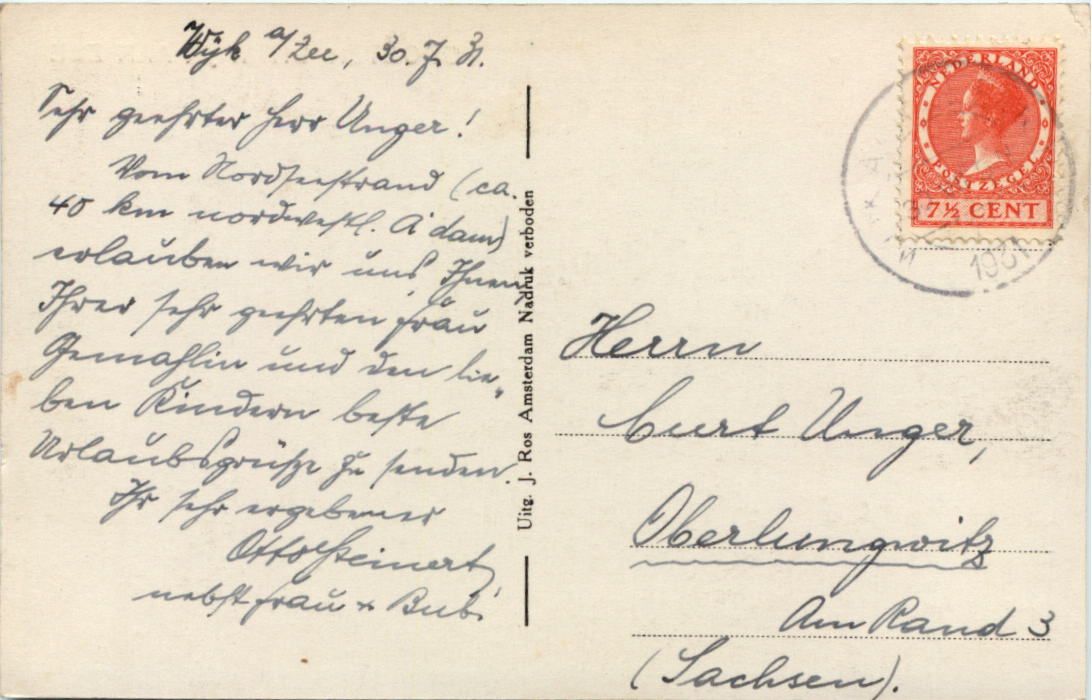 Wijk a/Zee, 30.7.31.
Sehr geehrter Herr Unger!
Vom Nordseestrand (ca.
40 km nordwestl. A'dam)
erlauben wir uns, Ihnen,
Ihrer sehr geehrten Frau
Gemahlin und den lie-
ben Kindern beste
Urlaubsgrüße zu senden.
Ihr sehr ergebener
Otto Steinert,
nebst Frau + Bubi.
Uitg. J. Ros Amsterdam Nadruk verboden
NEDERLAND
POSTZEGEL
7½ CENT
1931
Herrn
Curt Unger,
Oberlungwitz
Am Rand 3
(Sachsen).